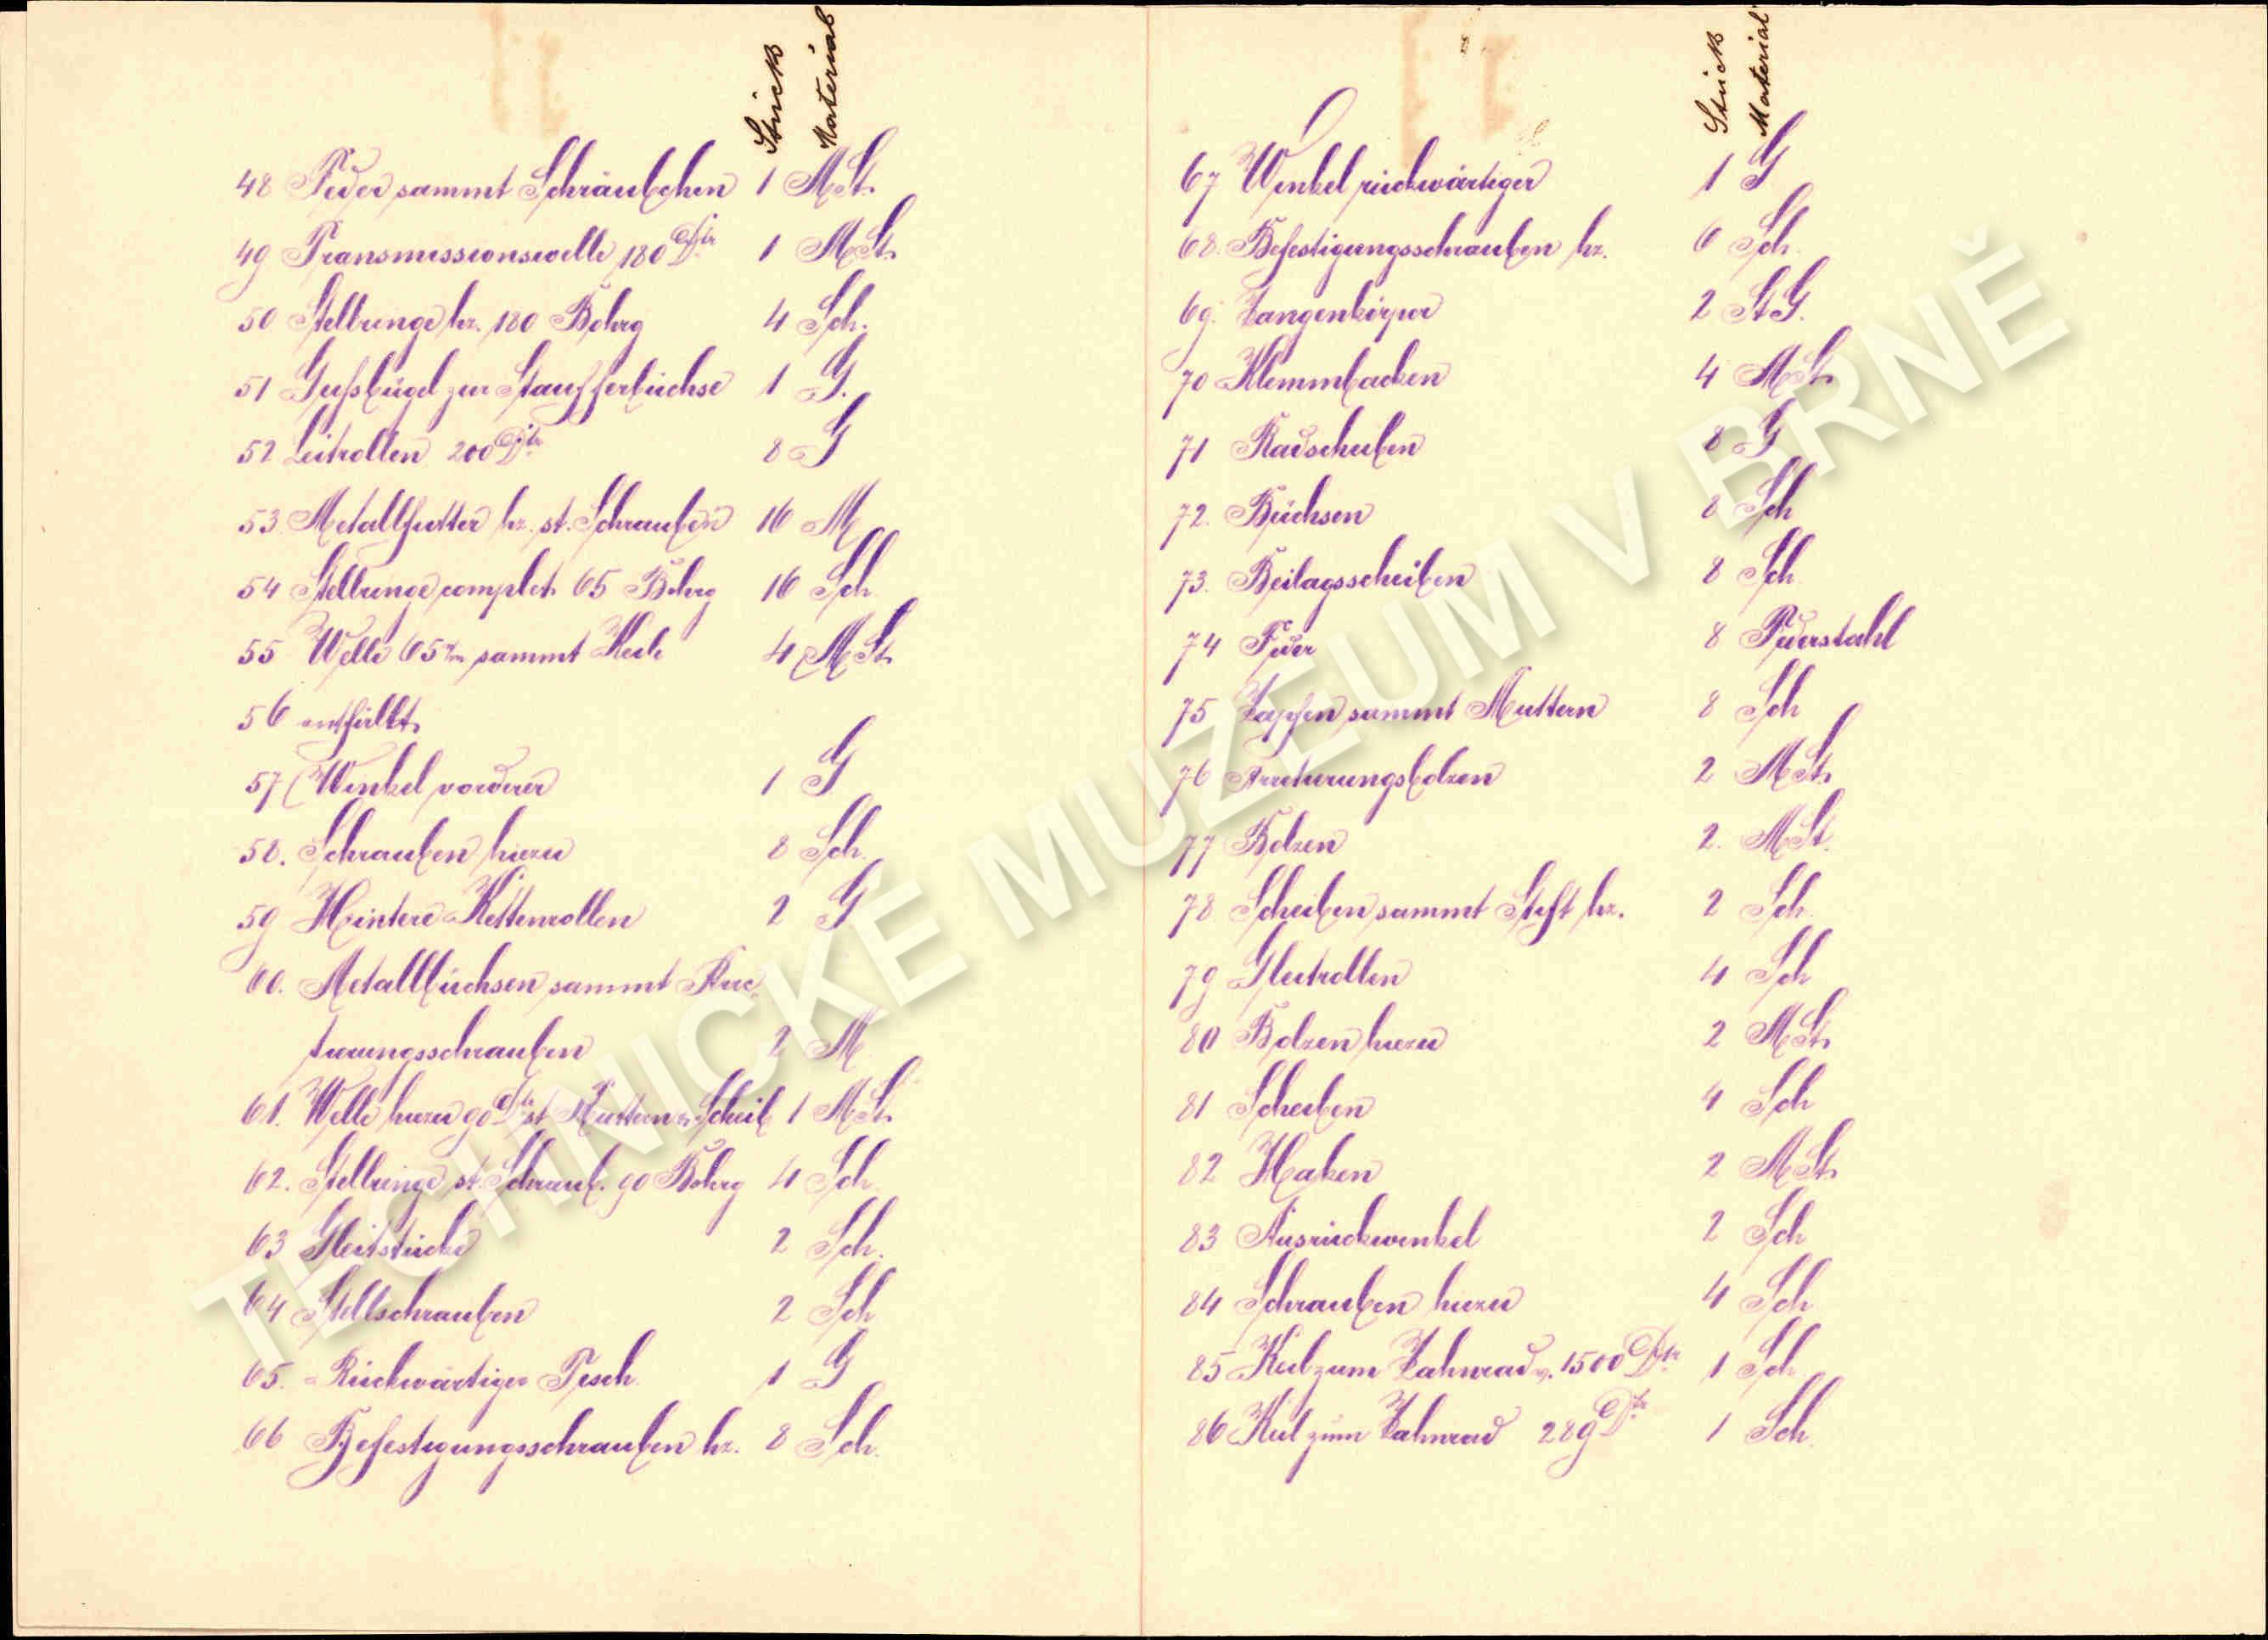 Stück Material
48 Feder sammt Schräubchen 1 M St.
49 Transmissionswelle 180 Dtr 1 M St.
50 Stellringe hz. 180 Bohrg 4 Sch.
51 Gußbügel zur Staufferbüchse 1 G.
52 Leitrollen 200 Dtr 8 G
53 Metallfutter hz. st. Schrauben 16 M
54 Stellringe complet 65 Bohrg 16 Sch
55 Welle 65 m/m sammt Keile 4 M St.
56 entfällt
57 Winkel vorderer 1 G
58. Schrauben hiezu 8 Sch.
59 Hintere Kettenrollen 2 G
60. Metallbüchsen sammt
schrauben 2 M
61. Welle hiezu 90 Dtr st. Muttern u. Scheib 1 M St.
62. Stellringe st. Schraub. 90 Bohrg 4 Sch
63 Gleitstücke 2 Sch.
64 Stellschrauben 2 Sch
65. Rückwärtiger Tisch 1 G
66 Befestigungsschrauben hz. 8 Sch.
Stück Material
67 Winkel rückwärtiger 1 G
68. Befestigungsschrauben hz. 6 Sch.
69. Zangenkörper 2 St G.
70 Klemmbacken 4 M St.
71 Radscheiben 8 G
72. Büchsen 8 Sch
73. Beilagsscheiben 8 Sch
74 Feder 8 Federstahl
75 Zapfen sammt Muttern 8 Sch
76 Arretierungsbolzen 2 M St.
77 Bolzen 2. M St.
78. Scheiben sammt Stift hz. 2 Sch.
79 Gleitrollen 4 Sch
80 Bolzen hiezu 2 M St.
81 Scheiben 4 Sch
82 Haken 2 M St.
83 Ausrückwinkel 2 Sch
84 Schrauben hiezu 4 Sch
85 Keil zum Zahnrad v. 1500 Dtr 1 Sch
86 Keil zum Zahnrad 289 Dtr 1 Sch
TECHNICKÉ MUZEUM V BRNĚ